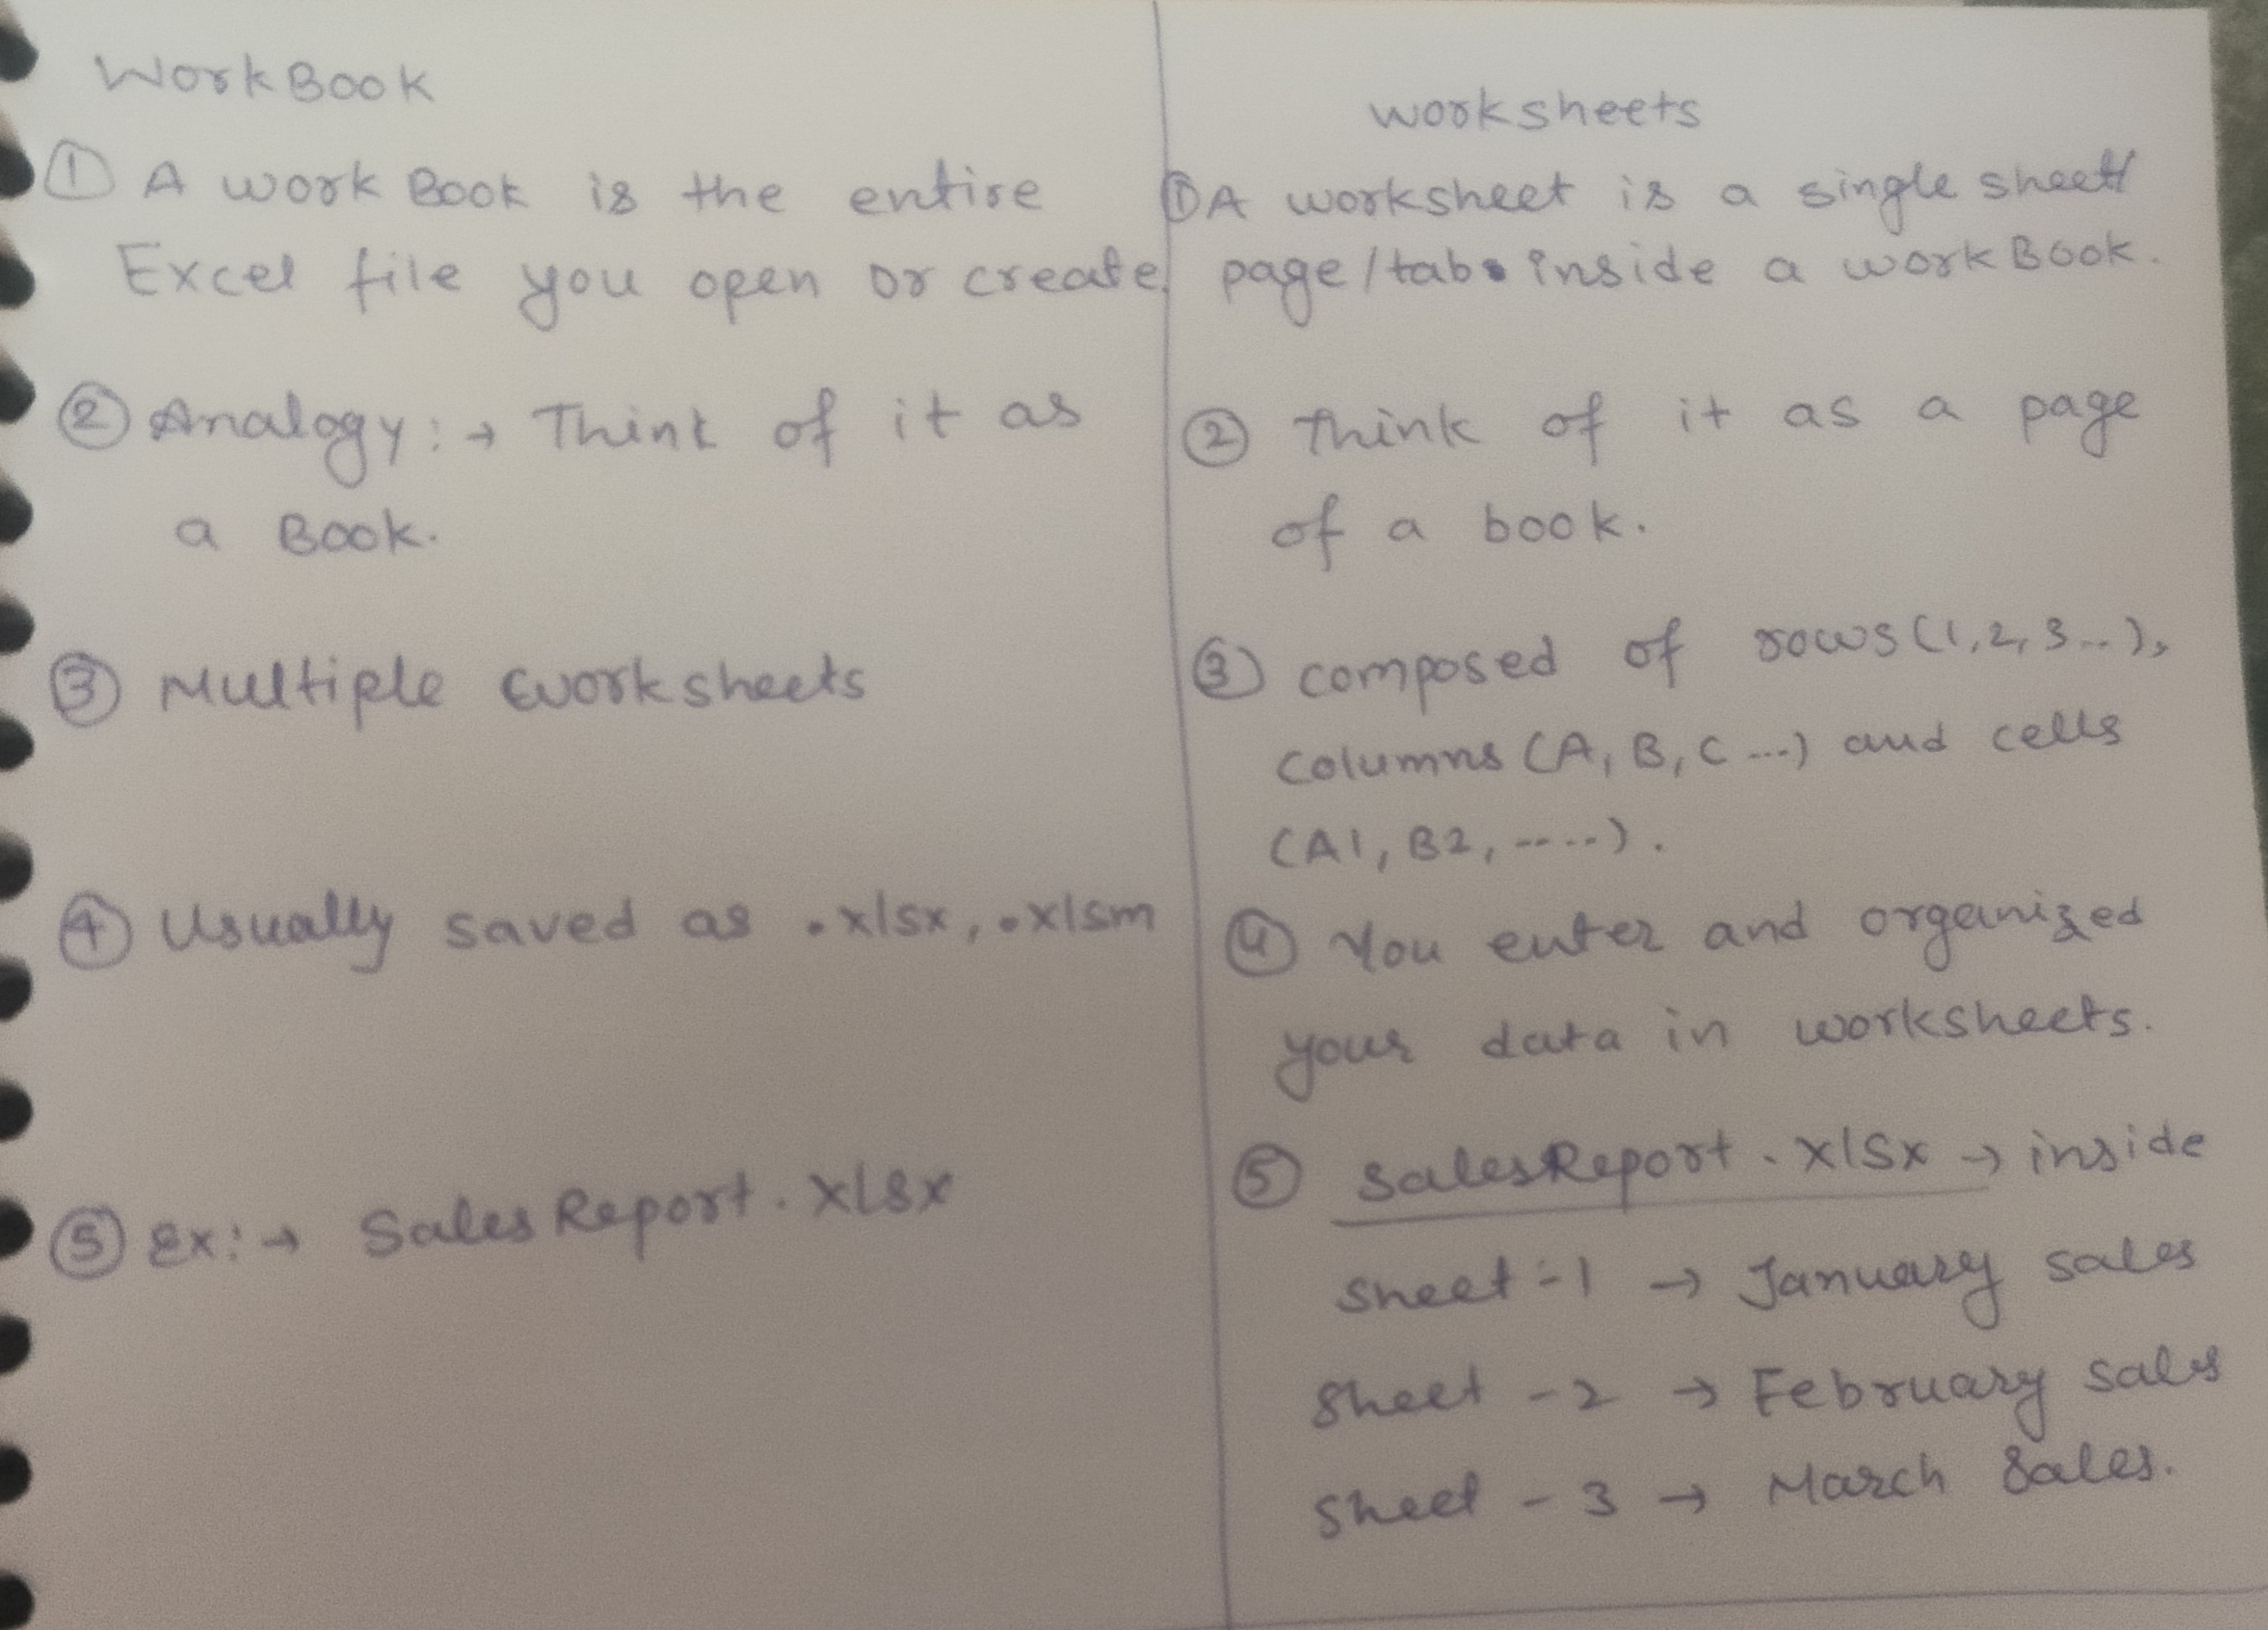 WorkBook
① A work Book is the entire
Excel file you open or create
② Analogy:→ Think of it as
a Book.
③ Multiple worksheets
④ Usually saved as .xlsx, .xlsm
⑤ Ex:→ Sales Report.xlsx
worksheets
① A worksheet is a single sheet/
page/tab inside a workBook.
② Think of it as a page
of a book.
③ composed of rows(1,2,3...),
columns (A, B, C ...) and cells
(A1, B2, .....).
④ You enter and organized
your data in worksheets.
⑤ SalesReport.xlsx → inside
sheet -1 → January sales
sheet -2 → February sales
sheet - 3 → March sales.